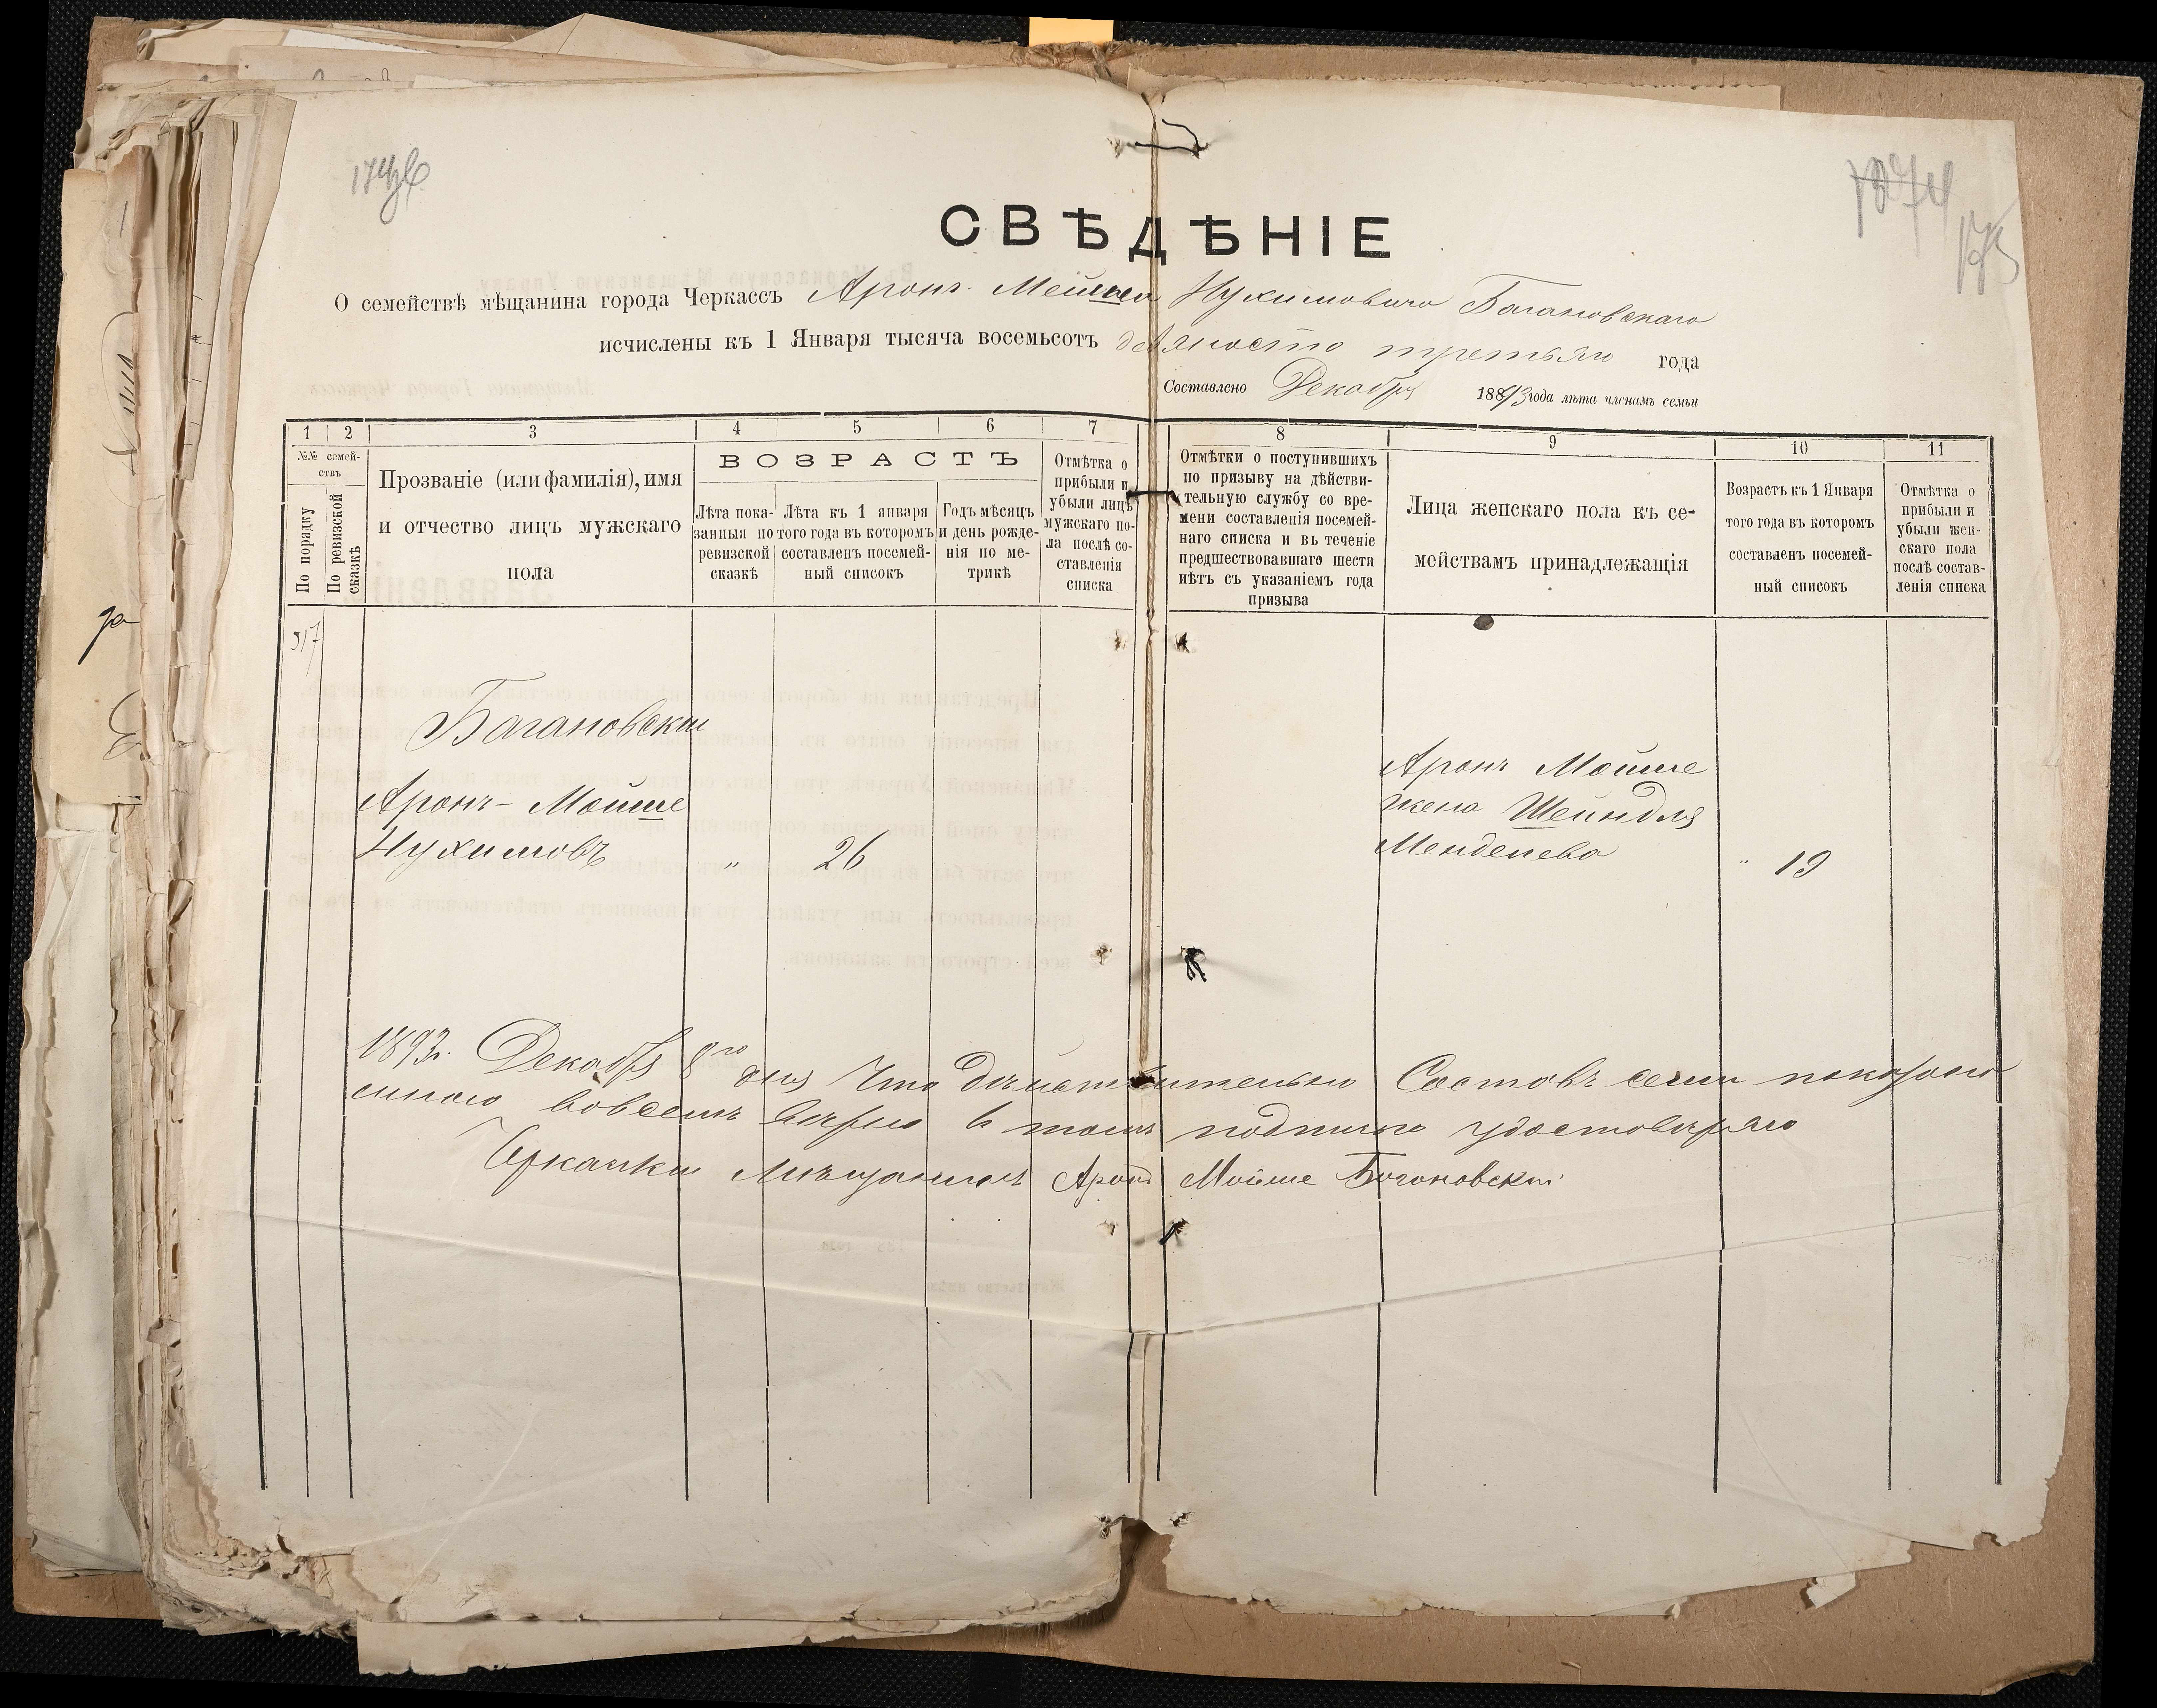 СВѢДѢНІЕ
О семействѣ мѣщанина города Черкассъ Аронъ Мойше Нухимовича Багановскаго
исчислены къ 1 Января тысяча восемьсотъ девяносто третьяго года
Составлено Декабря 1893 года лѣта членамъ семьи
1 2 3 4 5 6 7 8 9 10 11
№№ семей-
ствъ
По порядку
По ревизской
сказкѣ
Прозваніе (или фамилія), имя
и отчество лицъ мужскаго
пола
ВОЗРАСТЪ
Лѣта пока-
занныя по
ревизской
сказкѣ
Лѣта къ 1 января
того года въ которомъ
составленъ посемей-
ный списокъ
Годъ мѣсяцъ
и день рожде-
нія по ме-
трикѣ
Отмѣтка о
прибыли и
убыли лицъ
мужскаго по-
ла послѣ со-
ставленія
списка
Отмѣтки о поступившихъ
по призыву на дѣйстви-
тельную службу со вре-
мени составленія посемей-
наго списка и въ теченіе
предшествовавшаго шести
лѣтъ съ указаніемъ года
призыва
Лица женскаго пола къ се-
мействамъ принадлежащія
Возрастъ къ 1 Января
того года въ которомъ
составленъ посемей-
ный списокъ
Отмѣтка о
прибыли и
убыли жен-
скаго пола
послѣ состав-
ленія списка
317
Багановскій
Аронъ-Мойше
Нухимовъ " 26
Аронъ Мойше
жена Шейндля
Менделева " 19
1893 г. Декабря 8го дня Что дѣйствительно Составъ семи показано
мною вовсемъ вѣрно в томъ подписю удостовѣряю
Черкаскій Мѣщанинъ Аронъ Мойше Богоновскій